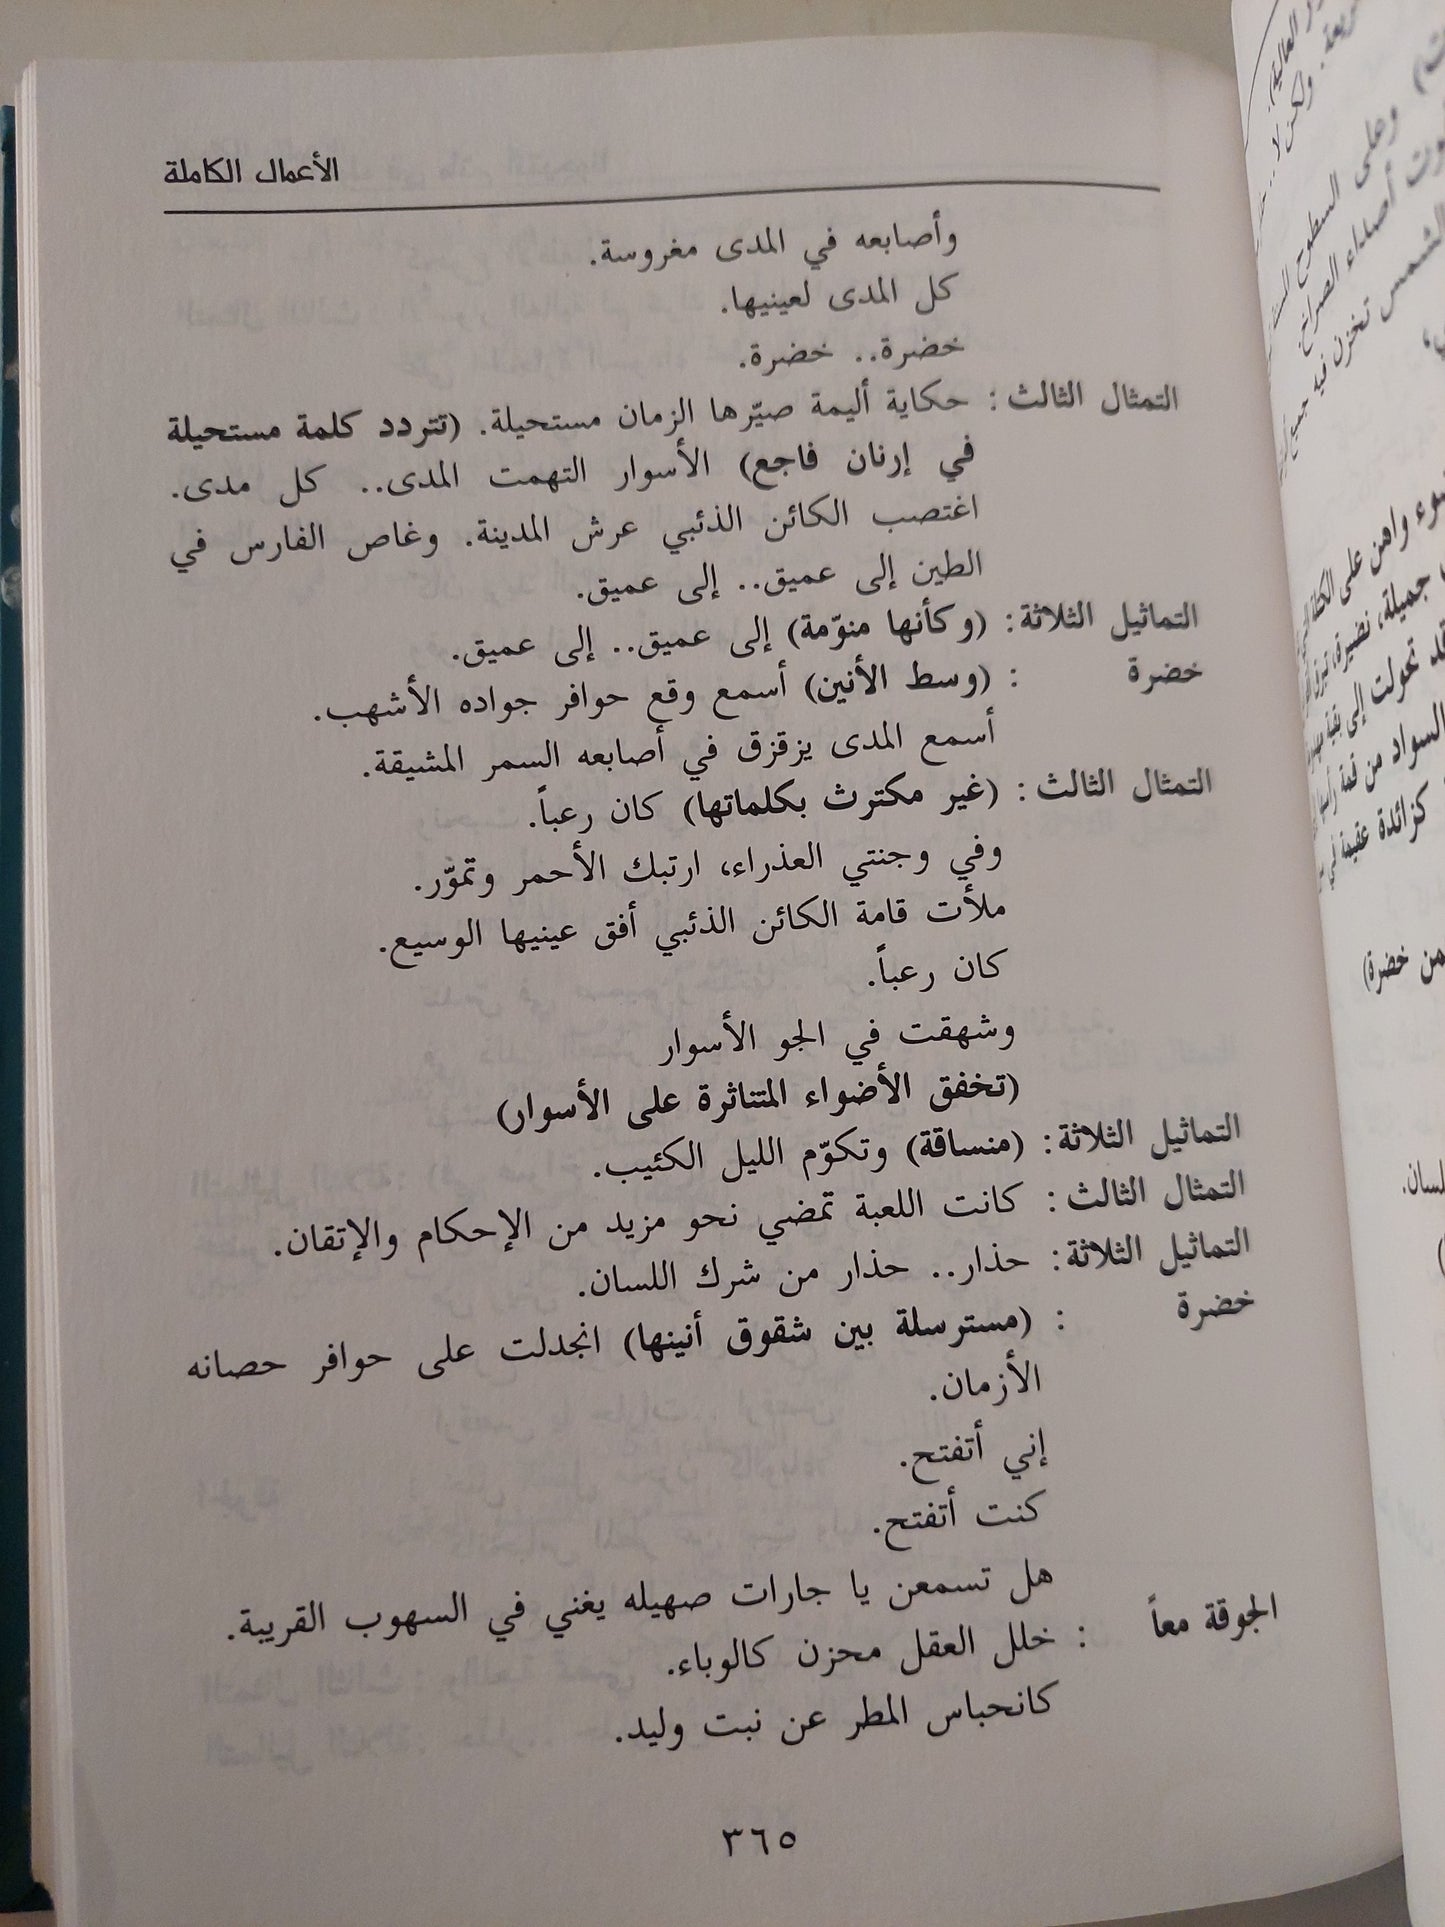 الأعمال الكاملة
وأصابعه في المدى مغروسة.
كل المدى لعينيها.
خضرة.. خضرة.
التمثال الثالث : حكاية أليمة صيّرها الزمان مستحيلة. (تتردد كلمة مستحيلة
في إرنان فاجع) الأسوار التهمت المدى.. كل مدى.
اغتصب الكائن الذئبي عرش المدينة. وغاص الفارس في
الطين إلى عميق.. إلى عميق.
التماثيل الثلاثة: (وكأنها منوّمة) إلى عميق.. إلى عميق.
خضرة : (وسط الأنين) أسمع وقع حوافر جواده الأشهب.
أسمع المدى يزقزق في أصابعه السمر المشيقة.
التمثال الثالث : (غير مكترث بكلماتها) كان رعباً.
وفي وجنتي العذراء، ارتبك الأحمر وتموّر.
ملأت قامة الكائن الذئبي أفق عينيها الوسيع.
كان رعباً.
وشهقت في الجو الأسوار
(تخفق الأضواء المتناثرة على الأسوار)
التماثيل الثلاثة: (منساقة) وتكوّم الليل الكئيب.
التمثال الثالث : كانت اللعبة تمضي نحو مزيد من الإحكام والإتقان.
التماثيل الثلاثة: حذار.. حذار من شرك اللسان.
خضرة : (مسترسلة بين شقوق أنينها) انجدلت على حوافر حصانه
الأزمان.
إني أتفتح.
كنت أتفتح.
هل تسمعن يا جارات صهيله يغني في السهوب القريبة.
الجوقة معاً : خلل العقل محزن كالوباء.
كانحباس المطر عن نبت وليد.
٣٦٥
وعلى السطوح
أصداء الصراخ.
الشمس تخزن فيه جميع
واهن على الكتلة
جميلة، نضيرة،
تحولت إلى بقية
السواد من قمة رأسها
كزائدة عقيمة في
من خضرة)